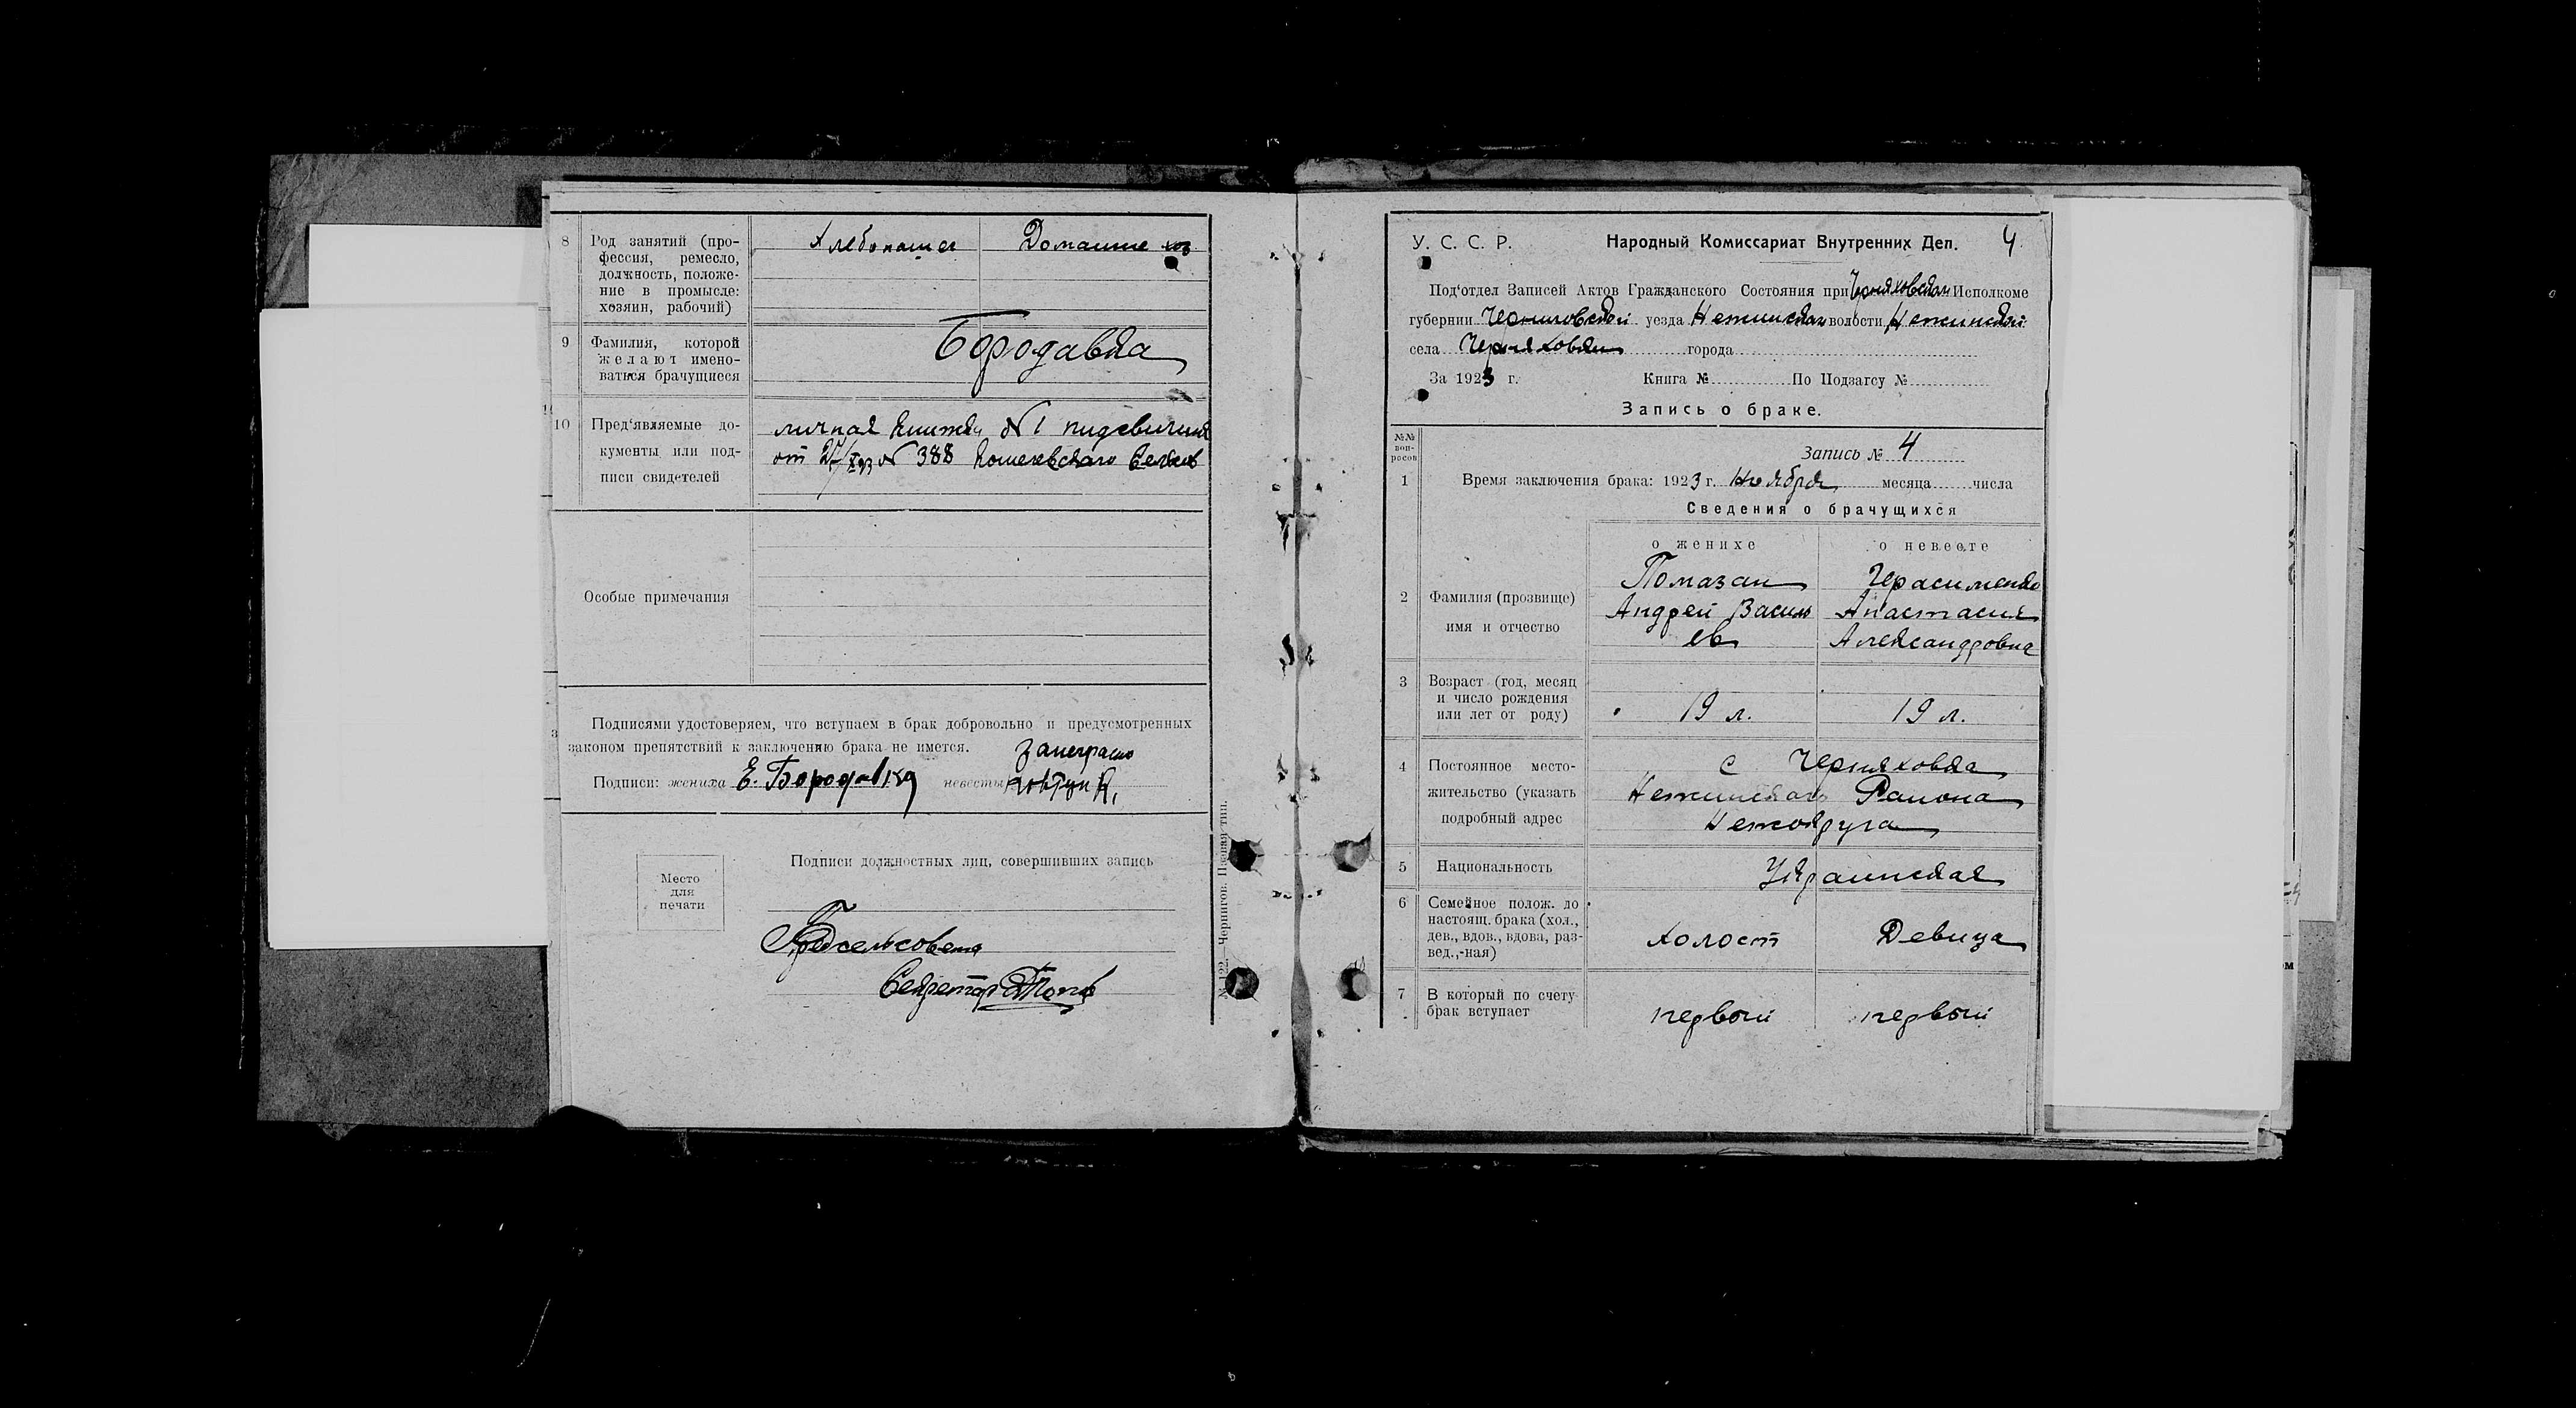 8 Род занятий (про-
фессия, ремесло,
должность, положе-
ние в промысле:
хозяин, рабочий)
Хлебопашец Домашне хоз
9 Фамилия, которой
желают имено-
ваться брачущиеся
Бородавка
10 Пред‘являемые до-
кументы или под-
писи свидетелей
личная книжка № 1
от № 388
Особые примечания
Подписями удостоверяем, что вступаем в брак добровольно и предусмотренных
законом препятствий к заключению брака не имется.
Подписи: жениха Е. Бородавка невесты
Место
для
печати
Подписи должностных лиц, совершивших запись
Предсельсовета
Секретар
№ 122.—Чернигов. Паевая тип.
У. С. С. Р. Народный Комиссариат Внутренних Дел. 4
Под‘отдел Записей Актов Гражданского Состояния при Черняховском Исполкоме
губернии Черниговской уезда Нежинском волости Нежинской
села Черняховки города
За 1923 г. Книга № По Подзагсу №
Запись о браке.
№№ воп-росов
Запись № 4
1 Время заключения брака: 1923 г. Ноября месяца числа
Сведения о брачущихся
о женихе о невесте
2 Фамилия (прозвище)
имя и отчество
Помазан Герасименко
Андрей Василь Анастасия
ев Александровна
3 Возраст (год, месяц
и число рождения
или лет от роду)
19 л. 19 л.
4 Постоянное место-
жительство (указать
подробный адрес
с Черняховка
Нежинскаго Района
Нежокруга
5 Национальность
Украинская
6 Семейное полож. до
настоящ. брака (хол.,
дев., вдов., вдова, раз-
вед.,-ная)
Холост Девица
7 В который по счету
брак вступает
первый первый